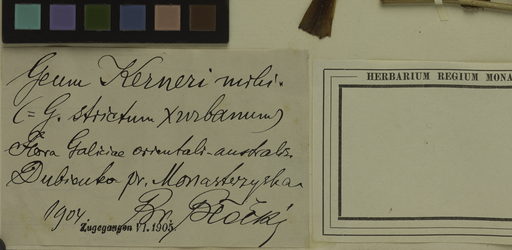 Geum Kerneri mihi.
(= G. strictum x urbanum)
Flora Galiciae orientali-australis.
Dubienko pr. Monasterzyska
1904 Br. Błocki
Zugegangen VI. 1905.
HERBARIUM REGIUM MONA